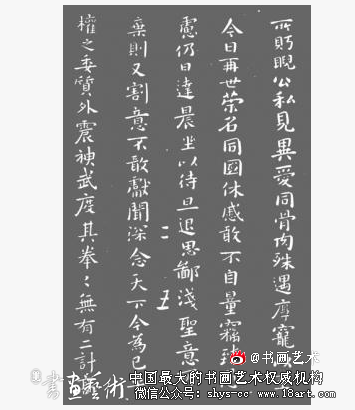 所眄睨公私見異愛同骨肉殊遇厚寵
今日再世榮名同國休慼敢不自量竊
慮仍日達晨坐以待旦退思鄙淺聖意
二 五
棄則又割意不敢獻聞深念天下今為已
權之委質外震神武度其拳〻無有二計
@书画艺术
書畫藝術
中国最大的书画艺术权威机构
微信公众号: shys-cc http://www.shys-cc.com